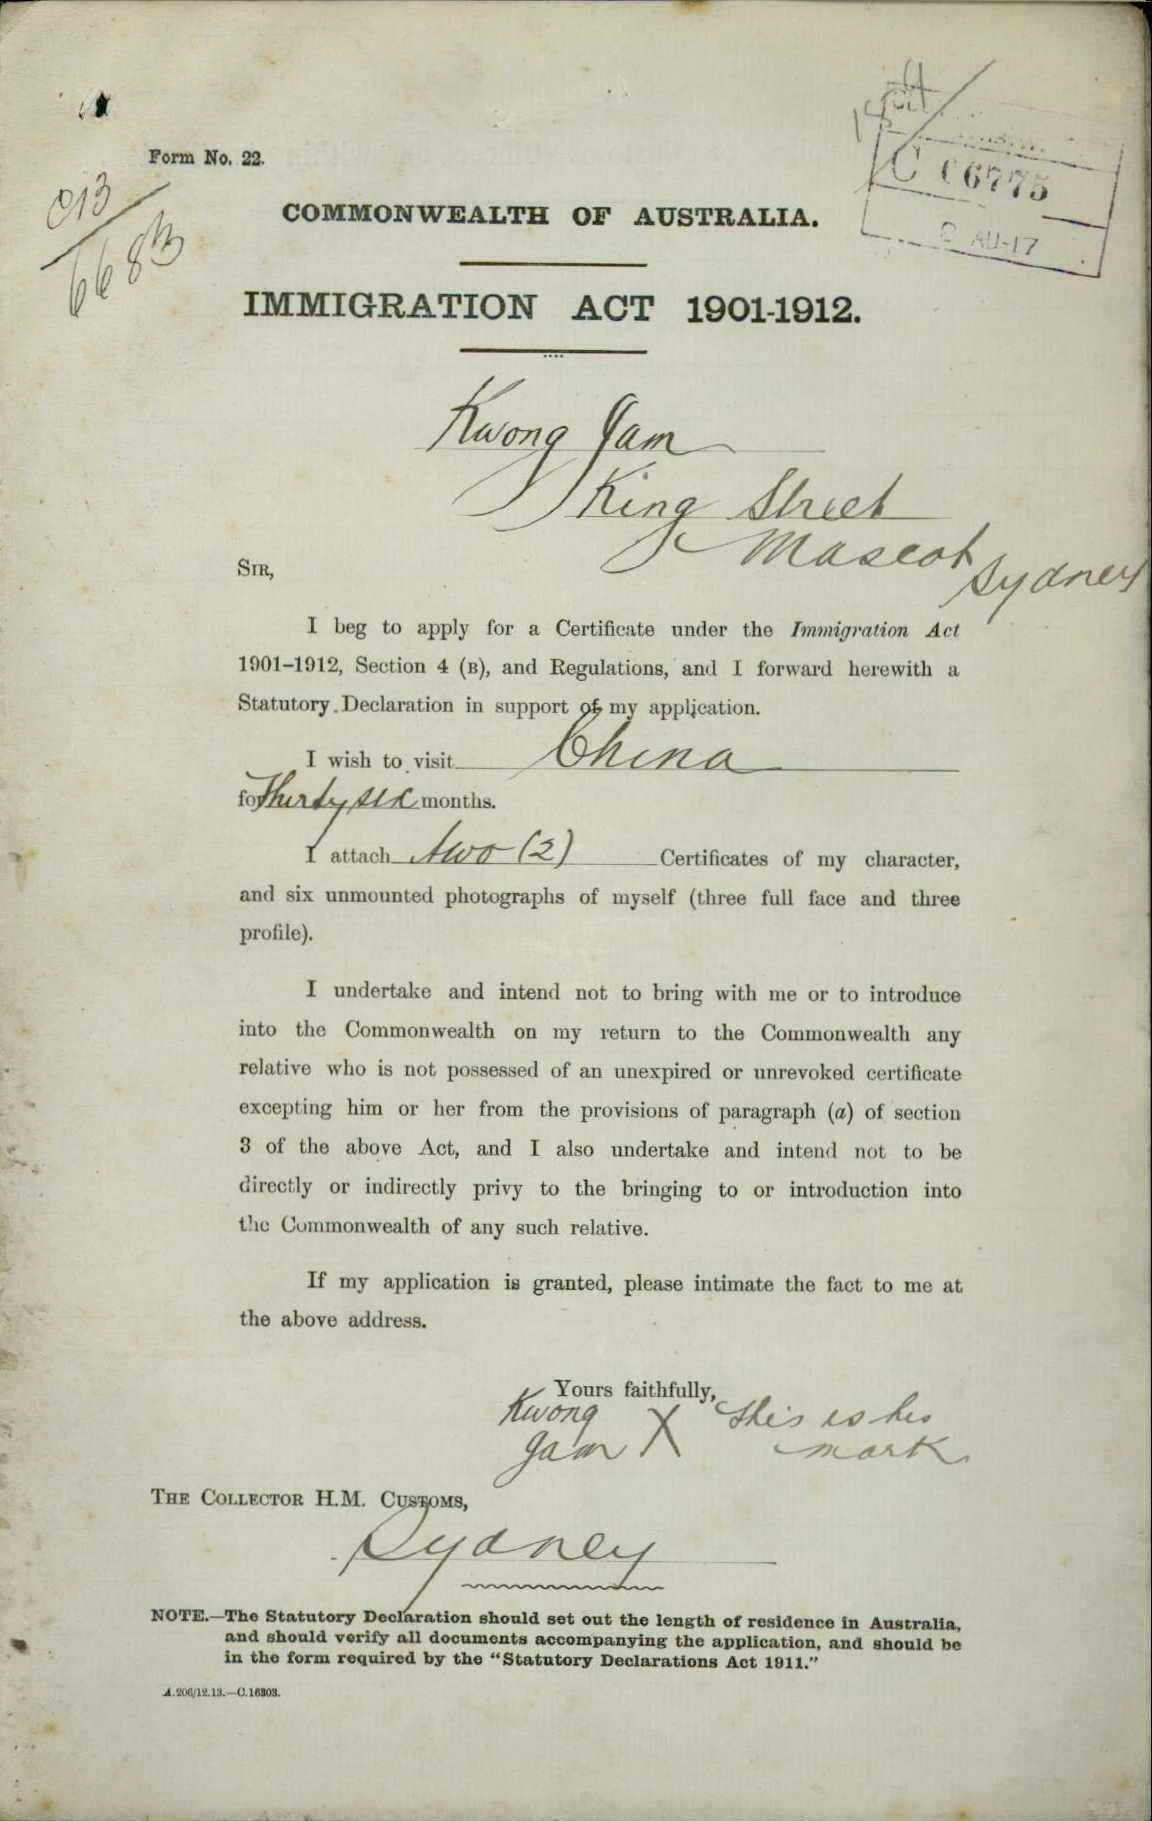 Form No. 22.
C 06775
AU-17
C13
6683
COMMONWEALTH OF AUSTRALIA.
IMMIGRATION ACT 1901-1912.
Kwong Jam
King Street
Mascot Sydney
SIR,
I beg to apply for a Certificate under the Immigration Act
1901–1912, Section 4 (B), and Regulations, and I forward herewith a
Statutory Declaration in support of my application.
I wish to visit China
for Thirty six months.
I attach Two (2) Certificates of my character,
and six unmounted photographs of myself (three full face and three
profile).
I undertake and intend not to bring with me or to introduce
into the Commonwealth on my return to the Commonwealth any
relative who is not possessed of an unexpired or unrevoked certificate
excepting him or her from the provisions of paragraph (a) of section
3 of the above Act, and I also undertake and intend not to be
directly or indirectly privy to the bringing to or introduction into
the Commonwealth of any such relative.
If my application is granted, please intimate the fact to me at
the above address.
Yours faithfully,
Kwong X This is his
Jam mark
THE COLLECTOR H.M. CUSTOMS,
Sydney
NOTE.—The Statutory Declaration should set out the length of residence in Australia,
and should verify all documents accompanying the application, and should be
in the form required by the "Statutory Declarations Act 1911."
A.206/12.13.—C.16303.